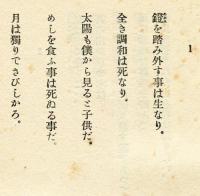 1
鐙を踏み外す事は生なり。
全き調和は死なり。
太陽も僕から見ると子供だ。
めしを食ふ事は死ぬる事だ。
月は獨りでさびしかろ。